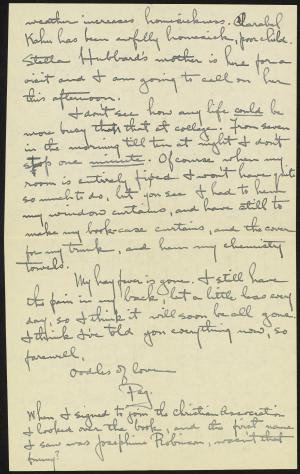 weather increases homesickness. Clarabel
Kahn has been awfully homesick, poor child.
Stella Hubbard's mother is here for a
visit and I am going to call on her
this afternoon.
I don't see how any life could be
more busy than that at college. From seven
in the morning till ten at night I don't
stop one minute. Of course when my
room is entirely fixed I won't have quite
so much to do, but you see I had to hem
my window curtains, and have still to
make my book-case curtains, and the cover
for my trunk, and hem my chemistry
towels.
My hay fever is gone. I still have
the pain in my back, but a little less every
day, so I think it will soon be all gone.
I think I've told you everything now, so
farewell,
Oodles of love
Peg.
When I signed to join the Christian Association
I looked over the book, and the first name
I saw was Josephine Robinson, wasn't that
funny?